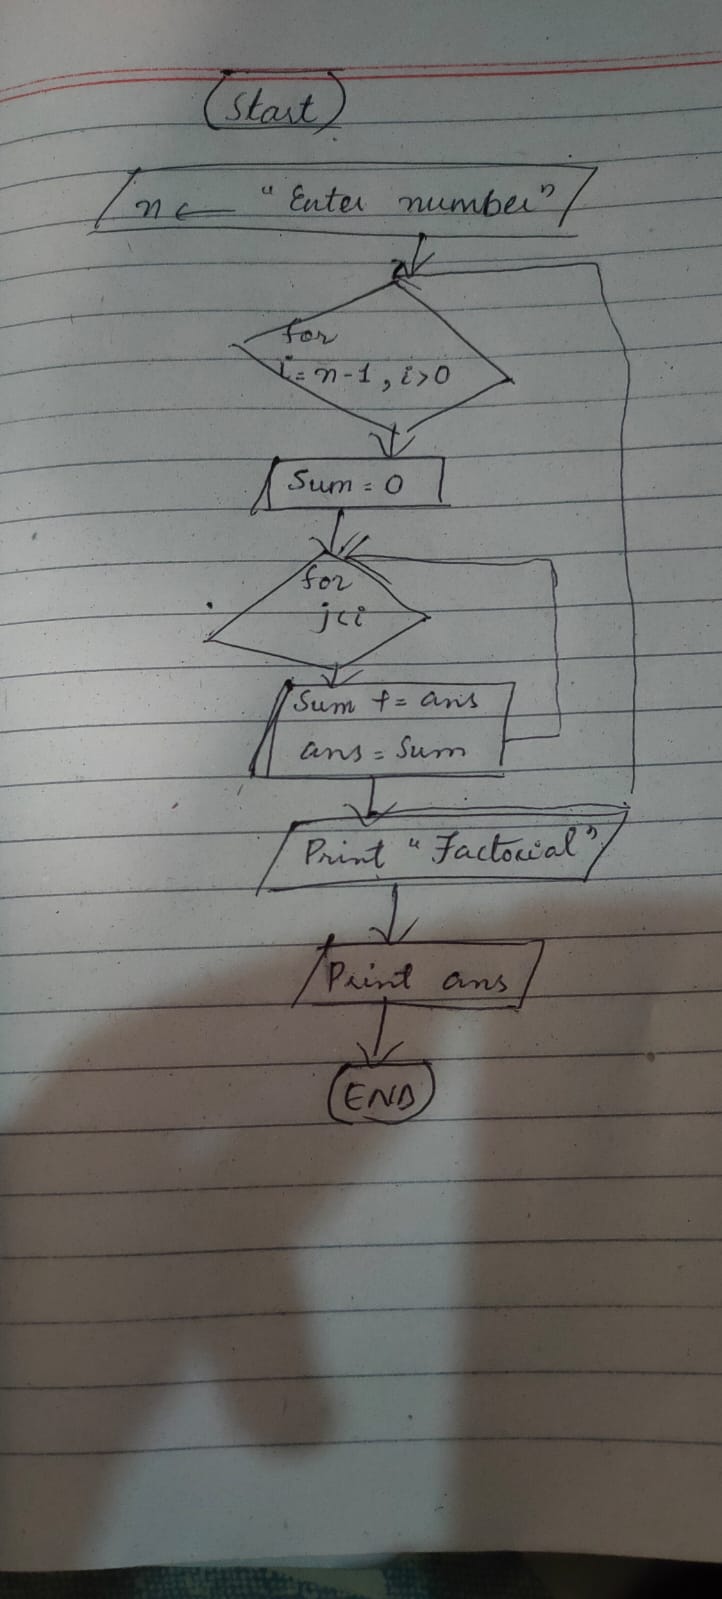 Start
n ← "Enter number"
for
i = n-1, i>0
Sum = 0
for
j<i
Sum += ans
ans = Sum
Print "Factorial"
Print ans
END